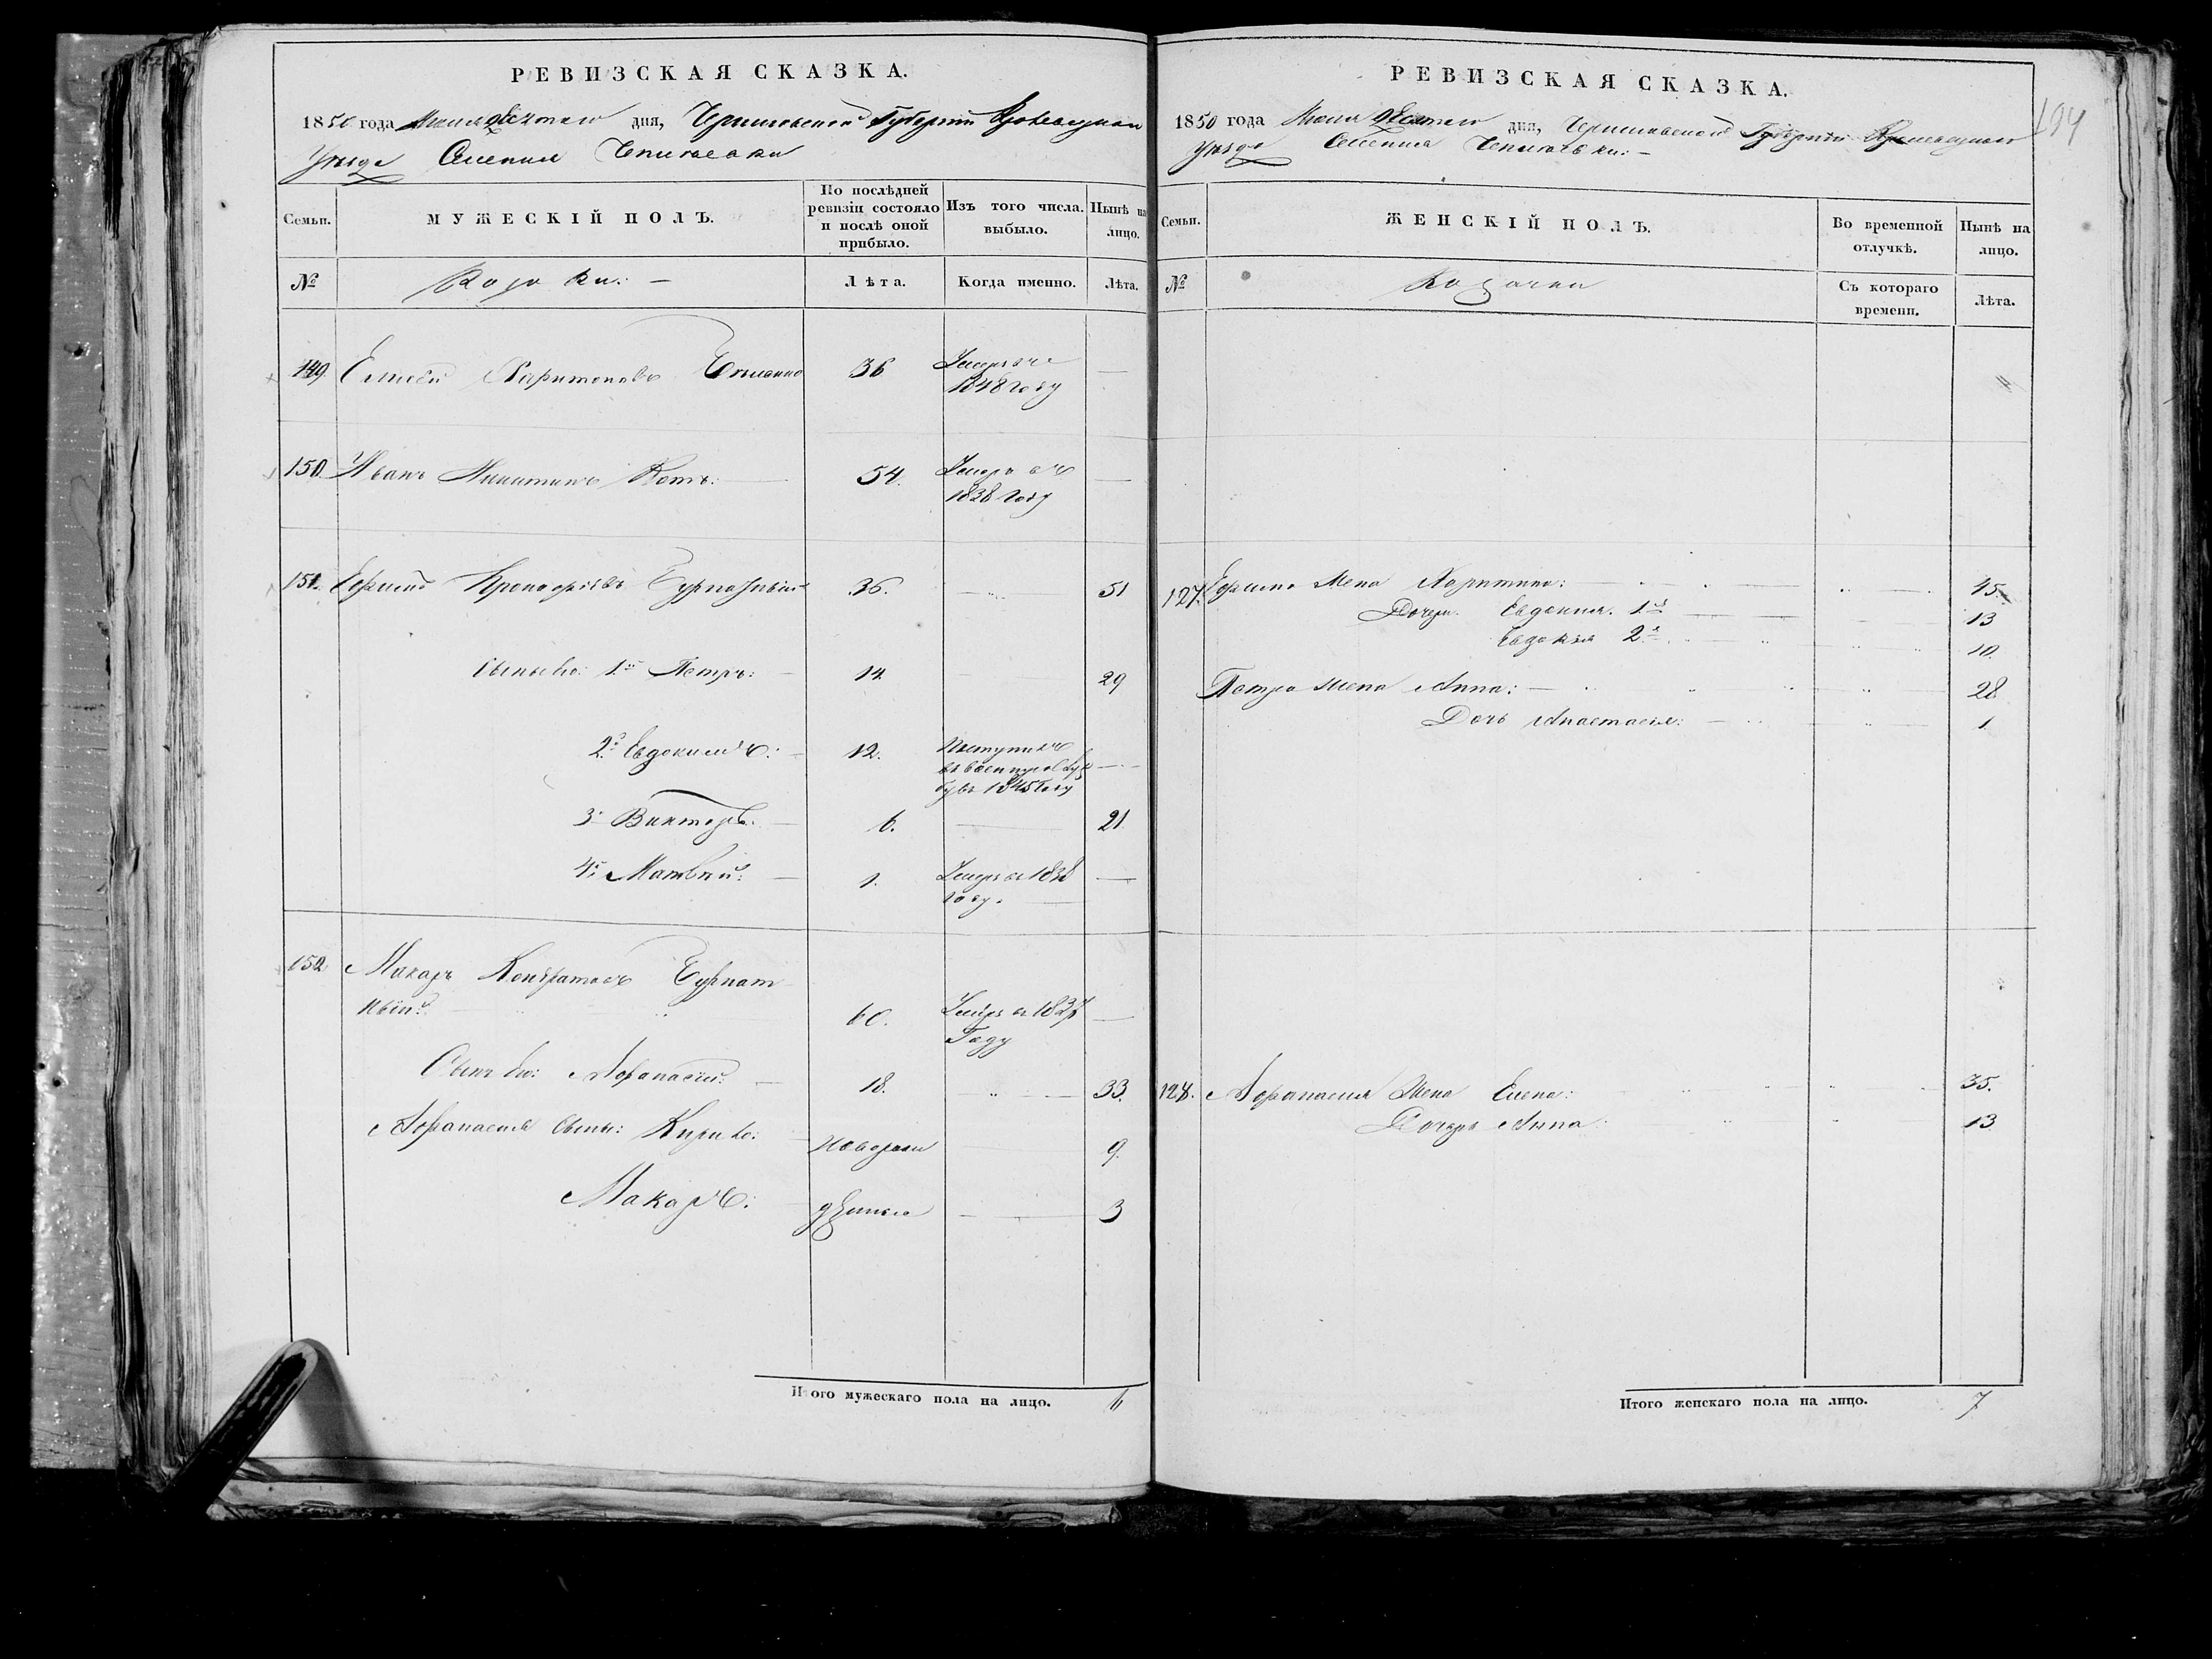 РЕВИЗСКАЯ СКАЗКА.
1850 года дня, Черниговской Губерніи
Уѣзде Селенія
Семьи. МУЖЕСКІЙ ПОЛЪ. По послѣдней ревизіи состояло и послѣ оной прибыло. Изъ того числа. выбыло. Нынѣ на лицо.
№ Козаки: Лѣта. Когда именно. Лѣта.
149 Елисей Харитоновъ 36 Умеръ въ —
1848 году
150 Иванъ Никитинъ Котъ: 54. Умеръ въ —
1838 году
151. Ефимъ 36. 51
Сыновья: 1й Петръ: 14 29
2й Евдокимъ: 12. Поступилъ
въ военную служ —
бу въ 1845 году
3й Викторъ: 6. 21
4й Матвѣй: 1. Умеръ въ 1838 —
году.
152 Макаръ Кондратовъ
60. Умеръ въ 1837 —
Году
Сынъ его: Афанасій: 18. 33.
Афанасія сыны: Кирило: новорож 9.
Макаръ: денные 3
Итого мужескаго пола на лицо. 6
РЕВИЗСКАЯ СКАЗКА.
194
1850 года дня, Черниговской Губерніи
Уѣзде Селенія
Семьи. ЖЕНСКІЙ ПОЛЪ. Во временной отлучкѣ. Нынѣ на лицо.
№ Козачки Съ котораго времени. Лѣта.
127. Ефима жена Харитина: 45
Дочери Евдокия 1я 13
Евдокия 2я 10
Петра жена Анна: 28
Дочь Анастасія: 1
128. Афанасия жена Елена: 35.
Дочерь Анна: 13
Итого женскаго пола на лицо. 7